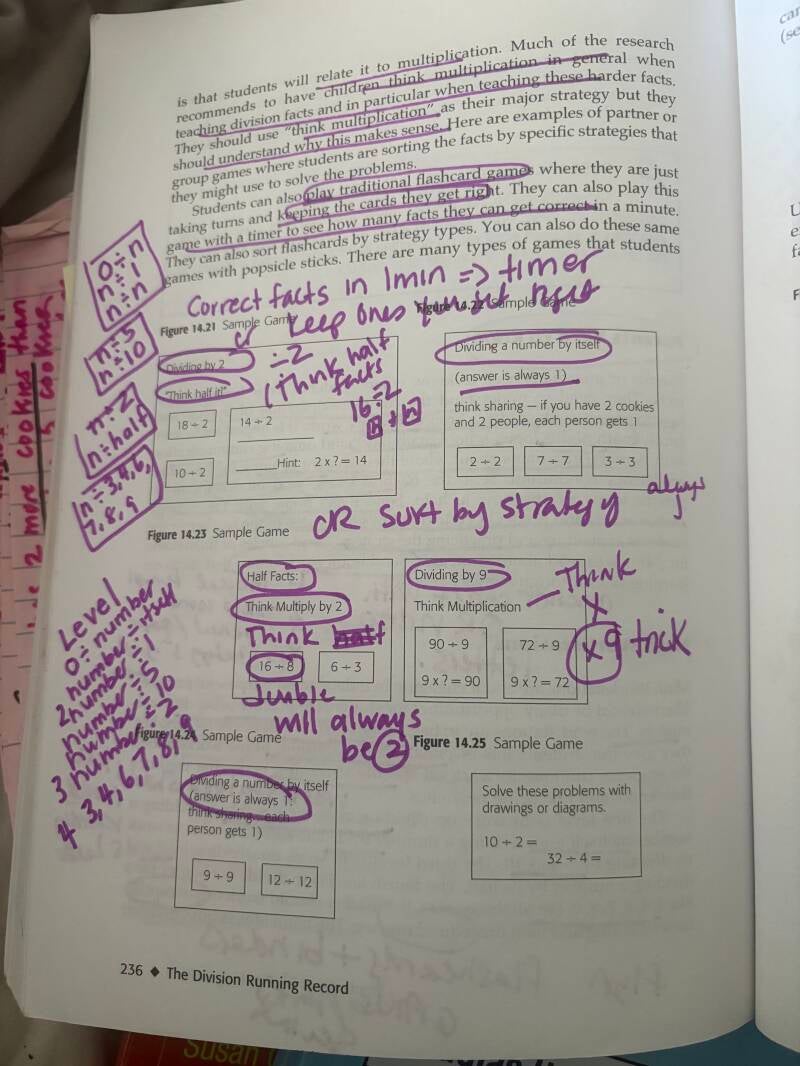 is that students will relate it to multiplication. Much of the research
recommends to have children think multiplication in general when
teaching division facts and in particular when teaching these harder facts.
They should use "think multiplication" as their major strategy but they
should understand why this makes sense. Here are examples of partner or
group games where students are sorting the facts by specific strategies that
they might use to solve the problems.
Students can also play traditional flashcard games where they are just
taking turns and keeping the cards they get right. They can also play this
game with a timer to see how many facts they can get correct in a minute.
They can also sort flashcards by strategy types. You can also do these same
games with popsicle sticks. There are many types of games that students
0 ÷ n
n ÷ 1
n ÷ n
n ÷ 5
n ÷ 10
n ÷ 2
n ÷ half
n ÷ 3,4,6,
7,8,9
Correct facts in 1min => timer
or keep ones
Figure 14.21 Sample Game
Dividing by 2
÷2
"Think half it!"
(Think half
facts
16 ÷ 2
18 ÷ 2
14 ÷ 2
10 ÷ 2
Hint: 2 x ? = 14
Figure 14.22 Sample Game
Dividing a number by itself
(answer is always 1)
think sharing – if you have 2 cookies
and 2 people, each person gets 1
2 ÷ 2
7 ÷ 7
3 ÷ 3
OR sort by strategy
always
Figure 14.23 Sample Game
Half Facts:
Think Multiply by 2
Think half
16 ÷ 8
6 ÷ 3
Double
will always
be 2
Dividing by 9
Think Multiplication
Think
x
x9 trick
90 ÷ 9
9 x ? = 90
72 ÷ 9
9 x ? = 72
Level
0 ÷ number
number ÷ itself
2 number ÷ 1
number ÷ 5
number ÷ 10
3 number ÷ 2
4 3,4,6,7,8,9
Figure 14.24 Sample Game
Dividing a number by itself
(answer is always 1:
think sharing...each
person gets 1)
9 ÷ 9
12 ÷ 12
Figure 14.25 Sample Game
Solve these problems with
drawings or diagrams.
10 ÷ 2 =
32 ÷ 4 =
236 ◆ The Division Running Record
2 more cookies than
Susan